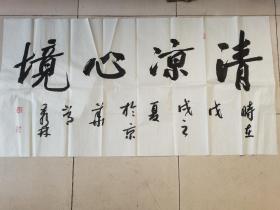 清凉心境
時在
戊
戌之
夏
於京
華